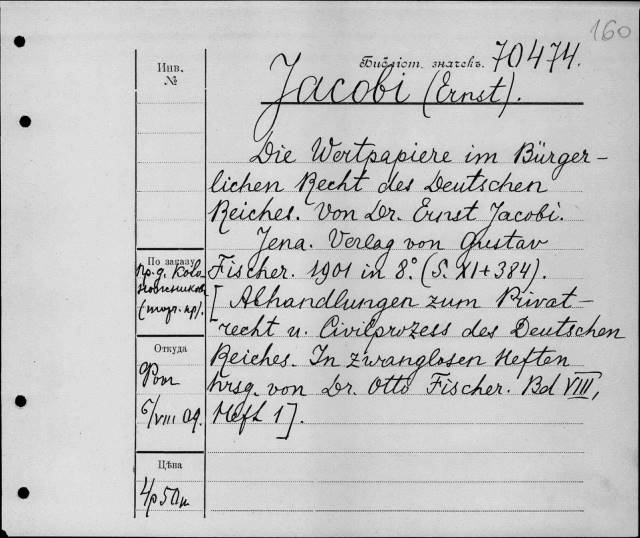 160
Библіот. значекъ. 70474.
Инв.
№
Jacobi (Ernst).
Die Wertpapiere im Bürger-
lichen Recht des Deutschen
Reiches. Von Dr. Ernst Jacobi.
Jena. Verlag von Gustav
По заказу
Fischer. 1901 in 8.° (S. XI + 384).
[Abhandlungen zum Privat-
recht u. Civilprozess des Deutschen
Откуда
Reiches. In zwanglosen Heften
hrsg. von Dr. Otto Fischer. Bd VIII,
6/VIII 09.
Heft 1].
Цѣна
4р 50к